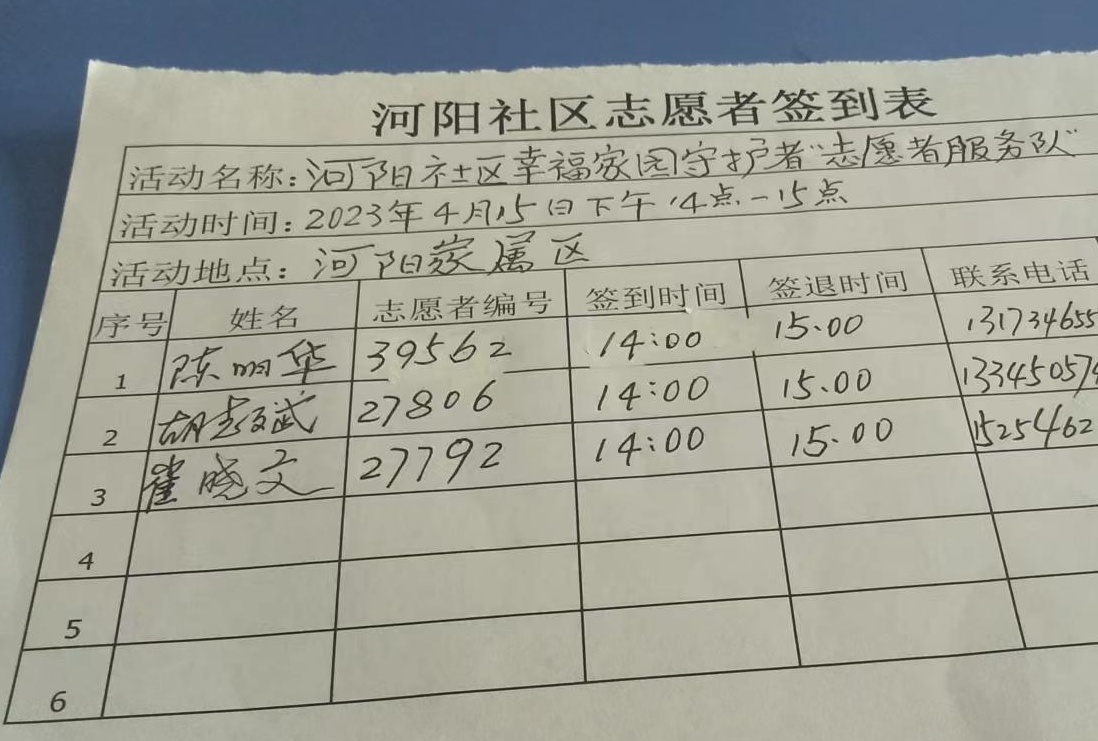 河阳社区志愿者签到表
活动名称：河阳社区幸福家园守护者“志愿者服务队”
活动时间：2023年4月15日下午14点-15点
活动地点：河阳家属区
序号 姓名 志愿者编号 签到时间 签退时间 联系电话
1 陈明华 39562 14:00 15.00 131734655
2 胡彭武 27806 14:00 15.00 133450574
3 崔晓文 27792 14:00 15.00 1525462
4
5
6